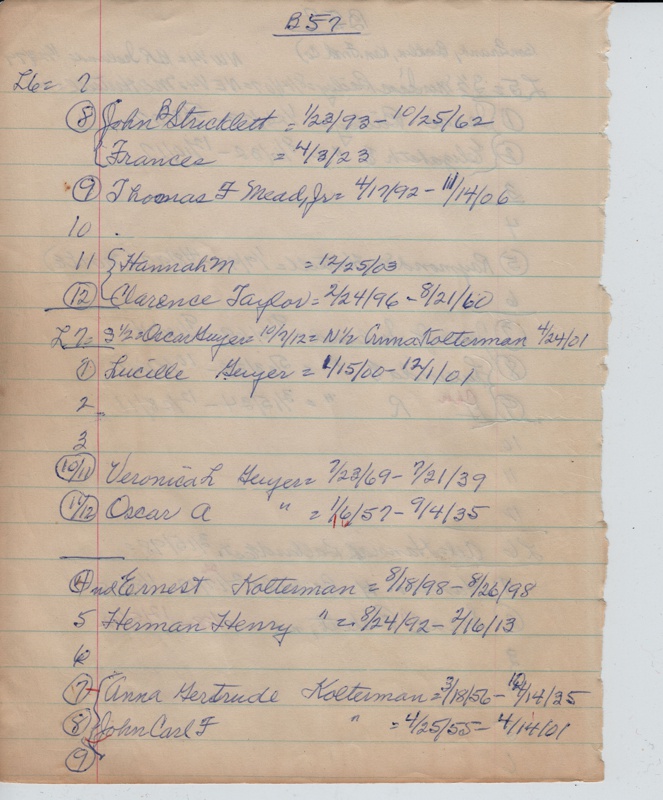 B 57
L6 = ?
8 John B Stricklett = 1/23/93 - 10/25/62
Frances = 4/3/23
9 Thomas F Mead, Jr = 4/17/92 - 11/14/06
10 .
11 Hannah M = 12/25/03
12 Clarence Taylor = 2/24/96 - 8/21/60
L 7 = S 1/2 = Oscar Guyer = 10/7/12 = N 1/2 Anna Kolterman 4/24/01
1 Lucille Guyer = 1/15/00 - 12/1/01
2
3
10/11 Veronica L Guyer = 7/23/69 - 7/21/39
11/12 Oscar A " = 1/6/57 - 9/4/35
4 Ernest Kolterman = 8/18/98 - 8/26/98
5 Herman Henry " = 8/24/92 - 2/16/13
6
7 Anna Gertrude Kolterman = 3/18/56 - 14/25
8 John Carl F " = 4/25/55 - 4/14/01
9